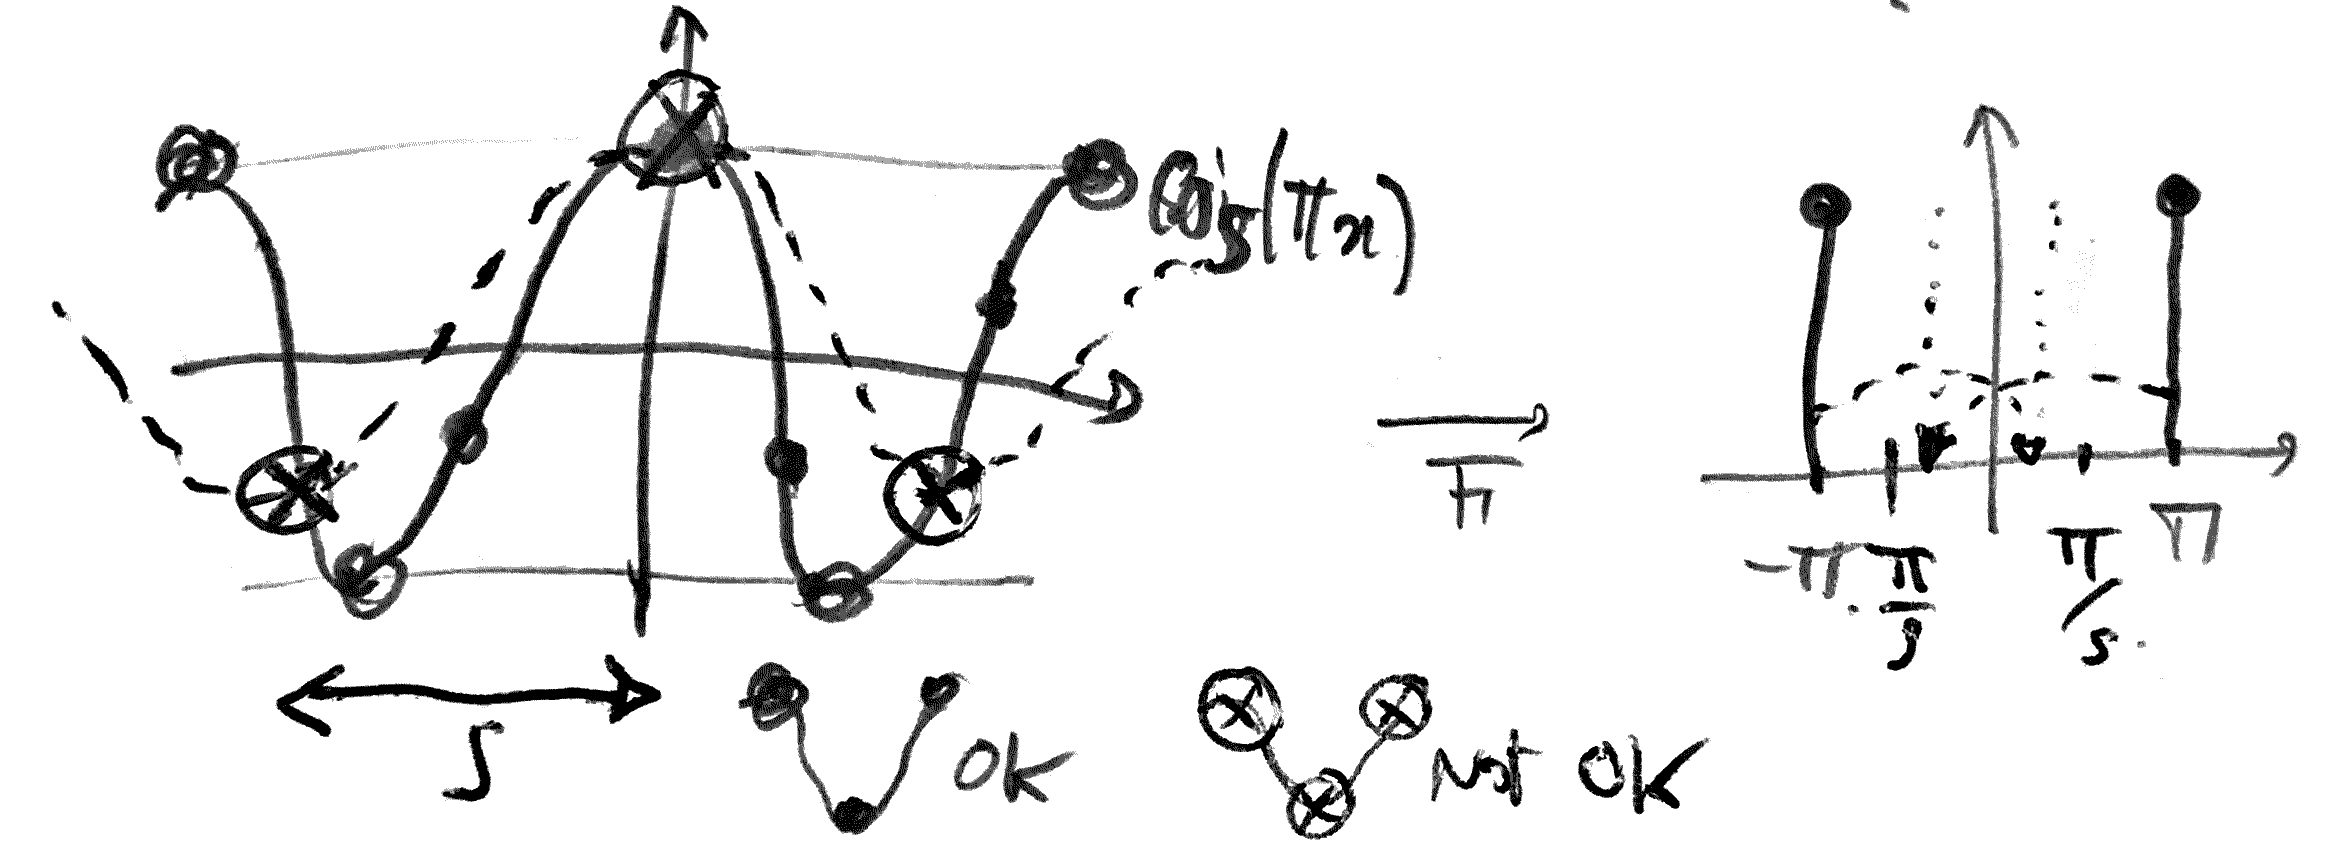 cos(πx)
F
-π
-π/s
π/s
π
s
OK
Not OK